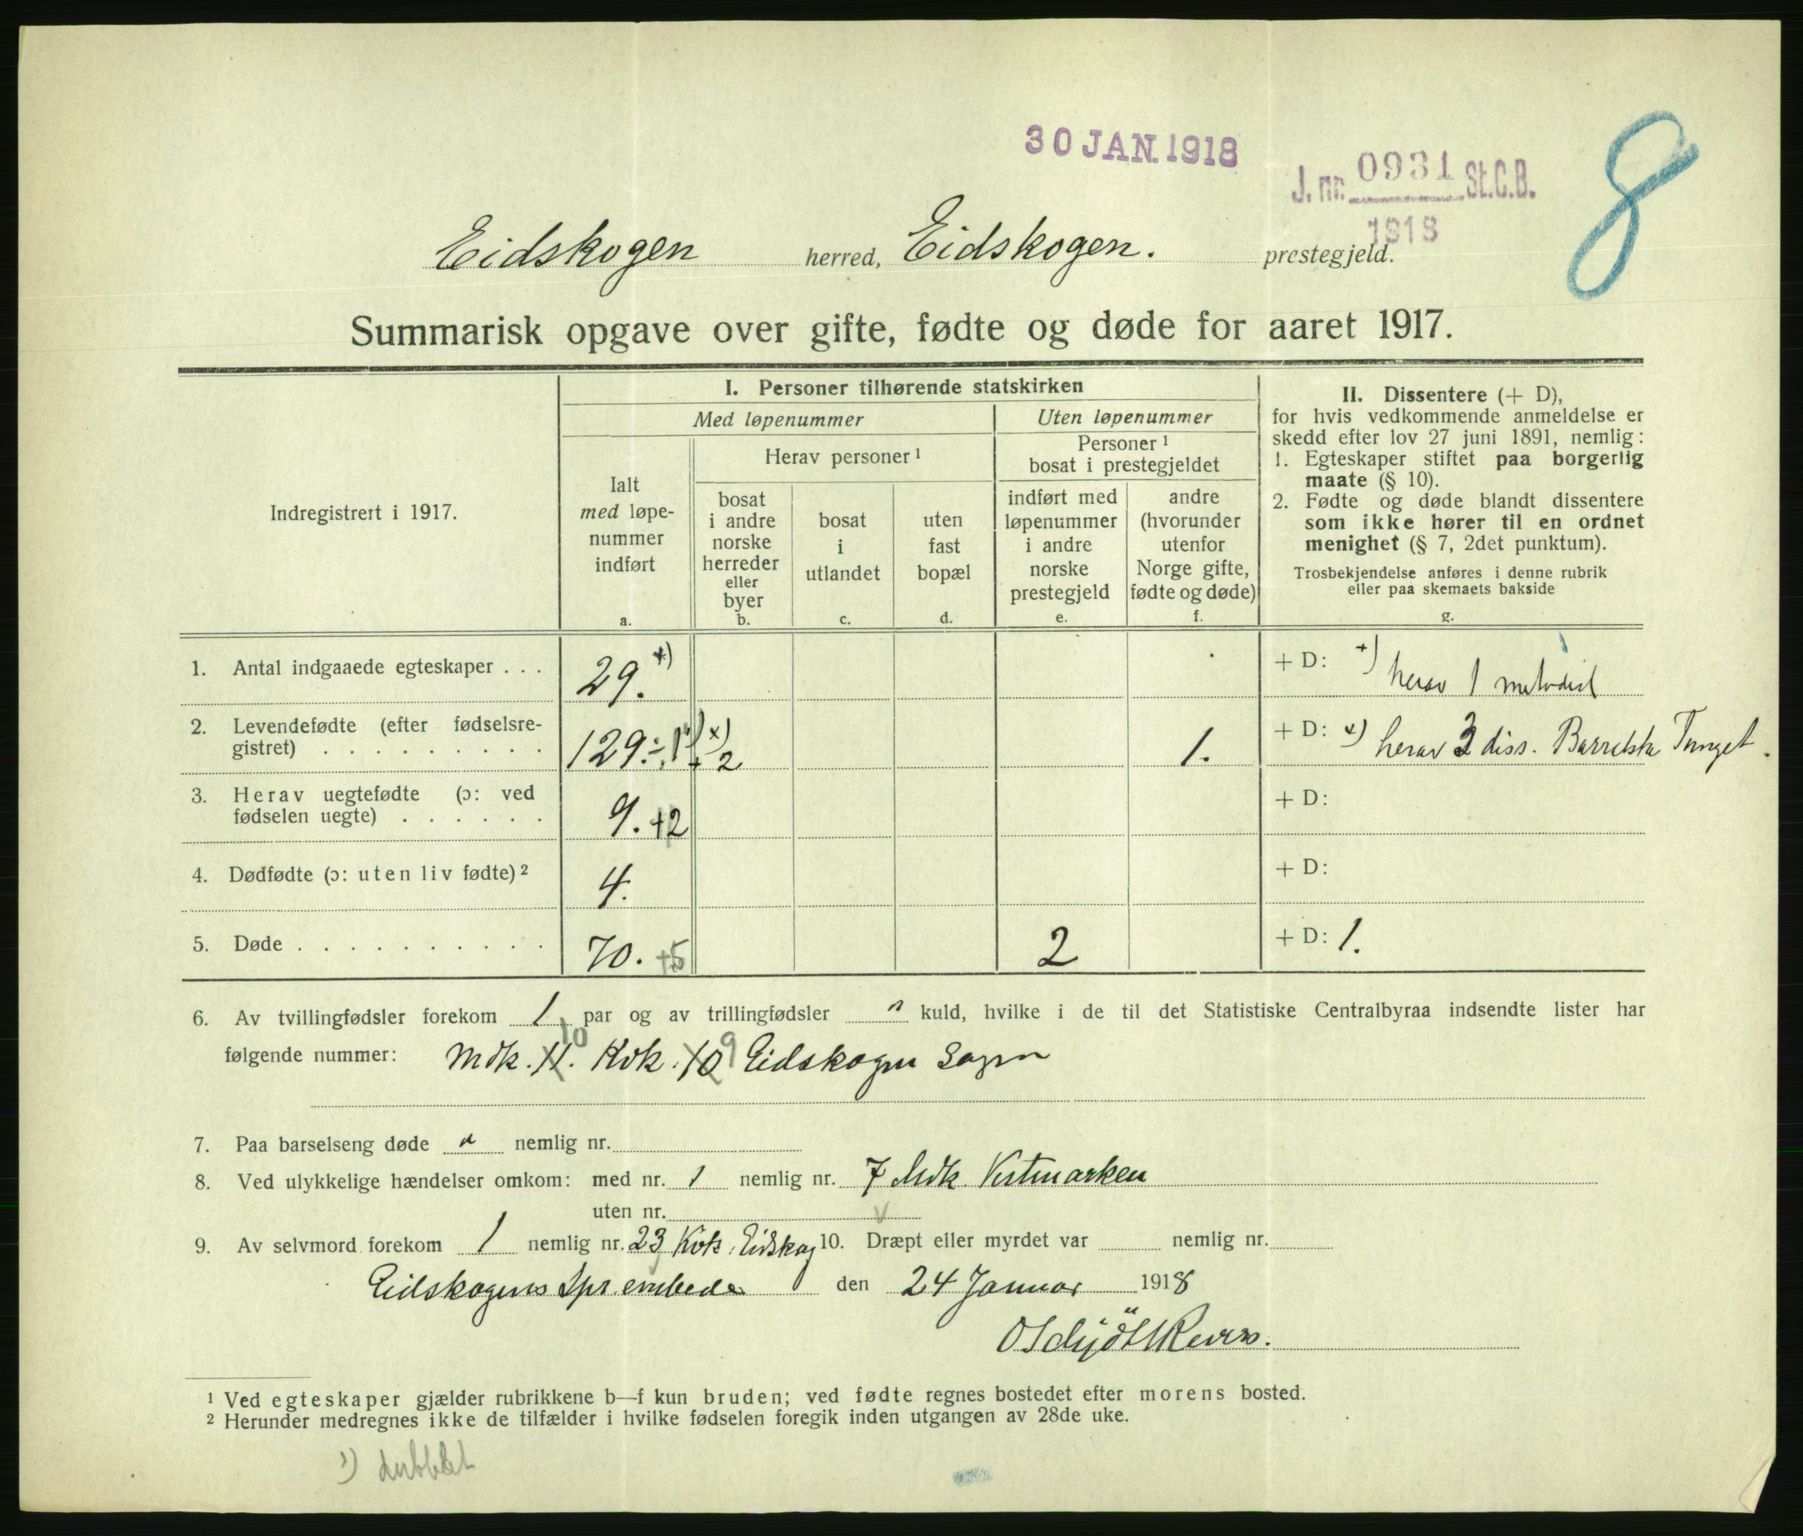 30 JAN. 1918
J. nr. 0931 St.C.B.
1918
8
Eidskogen herred, Eidskogen. prestegjeld.
Summarisk opgave over gifte, fødte og døde for aaret 1917.
Indregistrert i 1917.
I. Personer tilhørende statskirken
Med løpenummer
Uten løpenummer
Ialt
med løpe-
nummer
indført
a.
Herav personer ¹
bosat
i andre
norske
herreder
eller
byer
b.
bosat
i
utlandet
c.
uten
fast
bopæl
d.
Personer ¹
bosat i prestegjeldet
indført med
løpenummer
i andre
norske
prestegjeld
e.
andre
(hvorunder
utenfor
Norge gifte,
fødte og døde)
f.
II. Dissentere (+ D),
for hvis vedkommende anmeldelse er
skedd efter lov 27 juni 1891, nemlig:
1. Egteskaper stiftet paa borgerlig
maate (§ 10).
2. Fødte og døde blandt dissentere
som ikke hører til en ordnet
menighet (§ 7, 2det punktum).
Trosbekjendelse anføres i denne rubrik
eller paa skemaets bakside
g.
1. Antal indgaaede egteskaper . . . 29. +) + D: +) herav 1 metodist
2. Levendefødte (efter fødselsre-
gistret) . . . . . . . . . 129 ÷ 1 ¹) x) + 2 1. + D: x) herav 3 diss.
3. Herav uegtefødte (ɔ: ved
fødselen uegte) . . . . . . 9. +2 + D:
4. Dødfødte (ɔ: uten liv fødte) ² 4. + D:
5. Døde . . . . . . . . . . 70. +5 2 + D: 1.
6. Av tvillingfødsler forekom 1 par og av trillingfødsler " kuld, hvilke i de til det Statistiske Centralbyraa indsendte lister har
følgende nummer: Mdk. 11. 10 Kvk. 10 9 Eidskogen Sogn
7. Paa barselseng døde " nemlig nr.
8. Ved ulykkelige hændelser omkom: med nr. 1 nemlig nr. 7 Mdk Vestmarken
uten nr.
9. Av selvmord forekom 1 nemlig nr. 23 Kvk. Eidskog 10. Dræpt eller myrdet var nemlig nr.
Eidskogens Spr.embede den 24 Januar 1918
¹ Ved egteskaper gjælder rubrikkene b—f kun bruden; ved fødte regnes bostedet efter morens bosted.
² Herunder medregnes ikke de tilfælder i hvilke fødselen foregik inden utgangen av 28de uke.
¹) dubblet